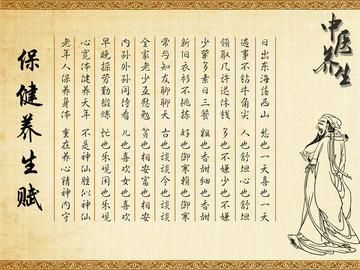 中医养生
日出东海落西山 愁也一天喜也一天
遇事不钻牛角尖 人也舒坦心也舒坦
领取几许退休钱 多也不嫌少也不嫌
少荤多素日三餐 粗也香甜细也香甜
新旧衣衫不挑拣 好也御寒赖也御寒
常与知友聊聊天 古也谈谈今也谈谈
全家老少互慰勉 贫也相安富也相安
内孙外孙同待看 儿也喜欢女也喜欢
早晚操劳勤锻炼 忙也乐观闲也乐观
心宽体健养天年 不是神仙胜似神仙
老年人保养身体 重在养心精神内守
保健养生赋